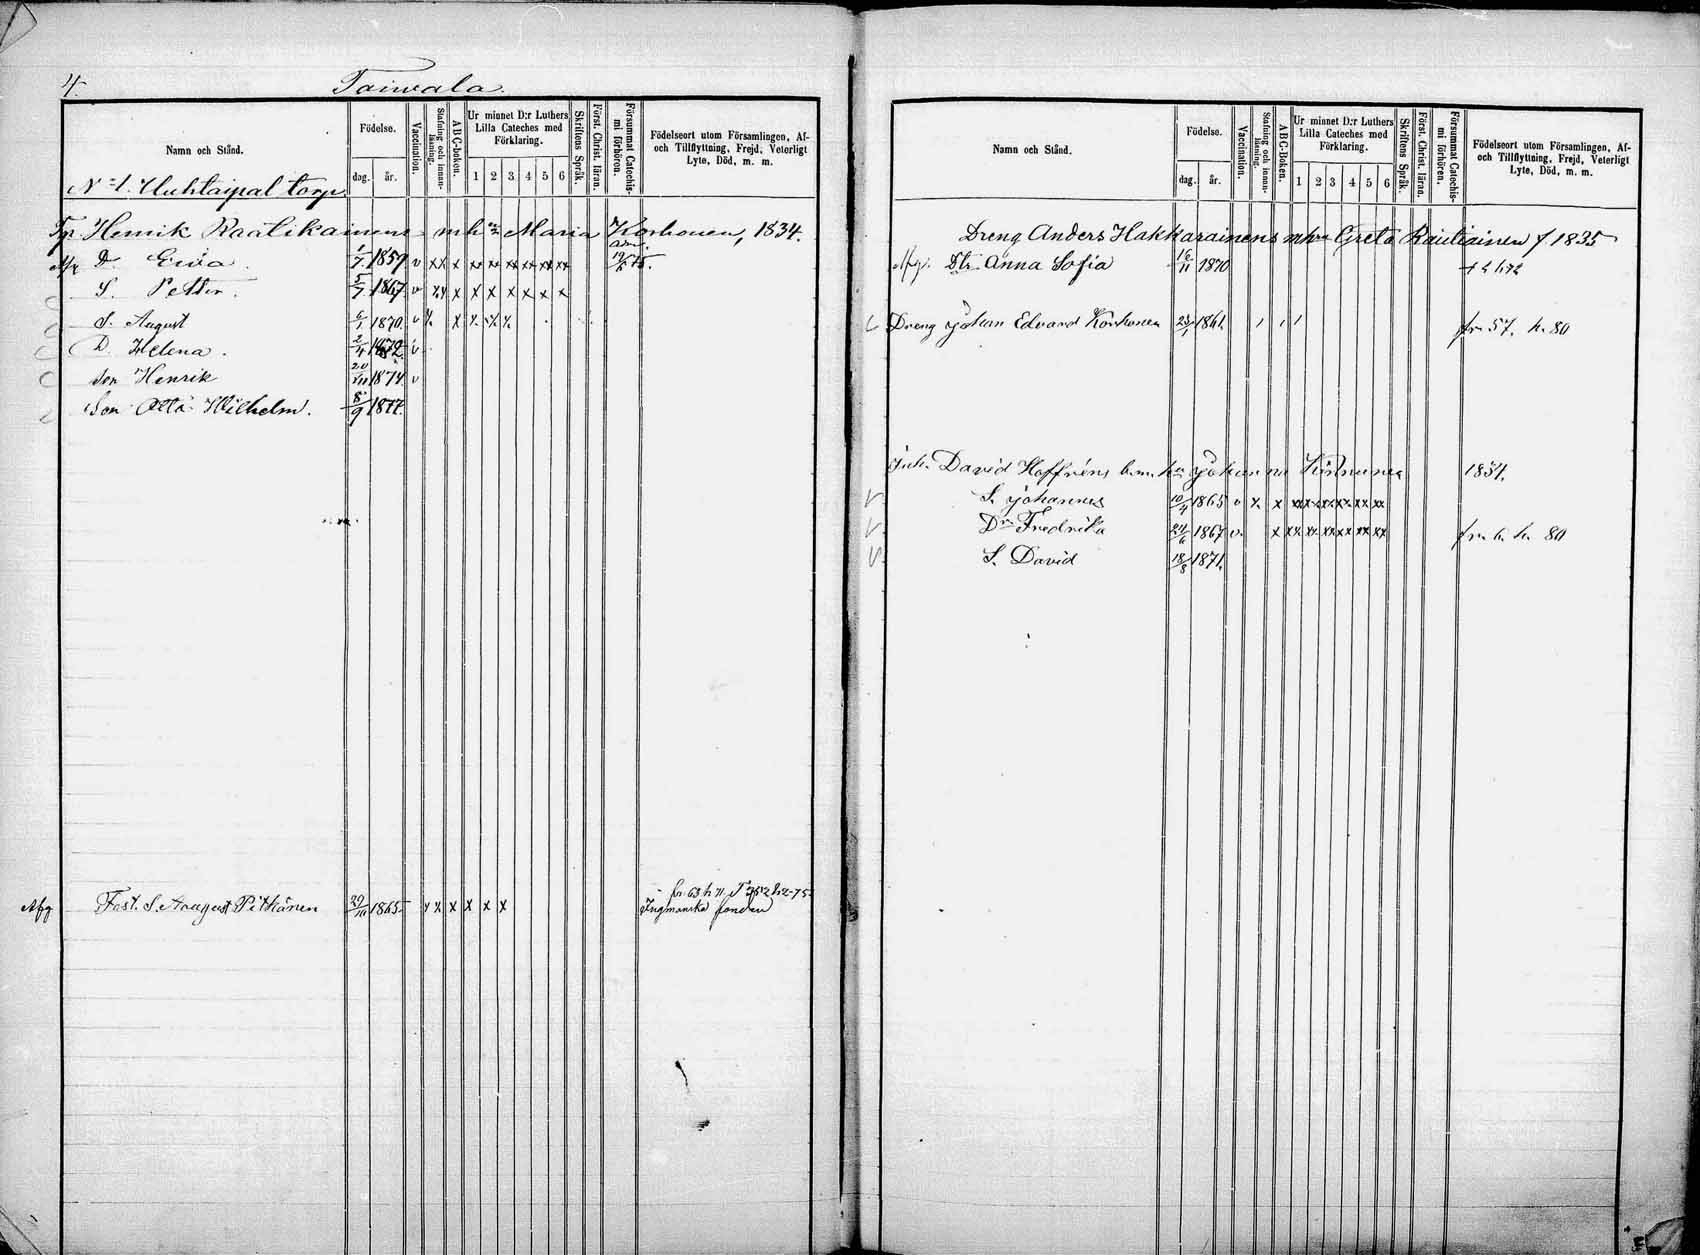 4.
Taiwala.
Namn och Stånd.
Födelse.
dag.
år.
Vaccination.
Stafning och innan-läsning.
ABC-boken.
Ur minnet D:r Luthers Lilla Cateches med Förklaring.
1 2 3 4 5 6
Skriftens Språk.
Först. Christ. läran.
Försummat Catechis-mi förhören.
Födelseort utom Församlingen, Af-
och Tillflyttning, Frejd, Veterligt
Lyte, Död, m. m.
N:1. Huhtaipal torp
Tp. Henrik Räätikainens m h:n Maria Korhonen, 1834.
Afg D. Ewa. 1/7 1859 v xx x xx xx xx xx xx xx adm. 75.
S. Petter. 5/7 1867 v xx x x x x x x x
S. August 6/1 1870. v x x x x
D. Helena. 2/4 1872. v
Son Henrik 20/11 1874 v
Son Otto Wilhelm. 8/9 1877
fr. 63 h 71.
Afg Fost. S. August Pitkänen 29/10 1865 x x x x x x Ingmanska fonden
Namn och Stånd.
Födelse.
dag.
år.
Vaccination.
Stafning och innan-läsning.
ABC-Boken.
Ur minnet D:r Luthers Lilla Cateches med Förklaring.
1 2 3 4 5 6
Skriftens Språk.
Först. Christ. läran.
Försummat Catechis-mi förhören.
Födelseort utom Församlingen, Af-
och Tillflyttning, Frejd, Veterligt
Lyte, Död, m. m.
Dreng Anders Hakkarainens m hu Greta Rautiainen f 1835
Afg. Dtr. Anna Sofia 16/11 1870
Dreng Johan Edvard Korhonen 23/1 1861. fr. 57. h. 80
Inh. David Hoffréns Johanna 1834.
v S. Johannes 10/4 1865 v x x xx xx xx xx xx xx
v. Dr. Fredrika 24/6 1867 v. x xx xx xx xx xx xx fr. 6. h. 80
v. S. David 18/8 1871.